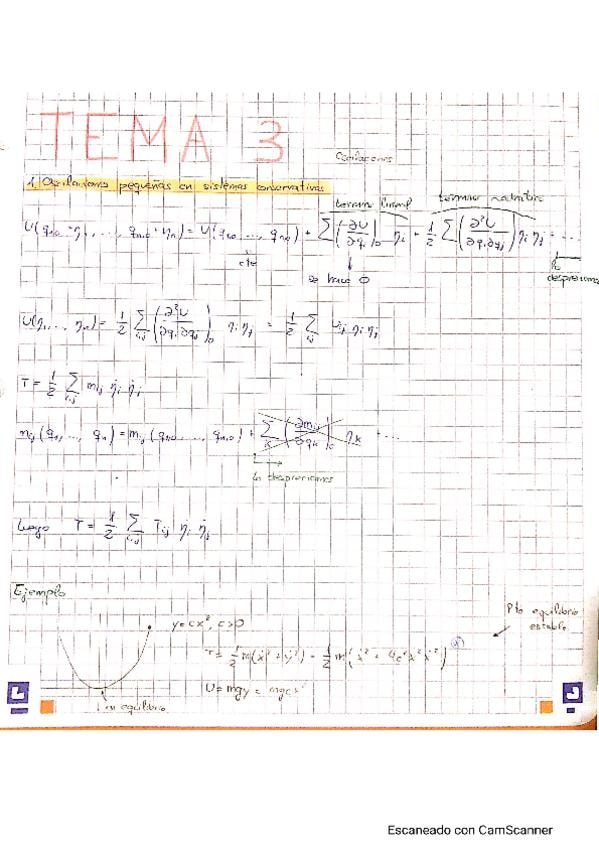 TEMA 3
Oscilaciones
1. Oscilaciones pequeñas en sistemas conservativos
término lineal término cuadrático
U(q₁₀+η₁, ..., qₙ₀+ηₙ) = U(q₁₀, ..., qₙ₀) + Σ(∂U/∂qᵢ)|₀ ηᵢ + 1/2 Σ(∂²U/∂qᵢ∂qⱼ) ηᵢ ηⱼ + ....
cte
se hace 0
despreciamos
U(η₁, ... ηₙ) = 1/2 Σᵢ,ⱼ (∂²U/∂qᵢ∂qⱼ)|₀ ηᵢ ηⱼ = 1/2 Σᵢ,ⱼ Uᵢⱼ ηᵢ ηⱼ
T = 1/2 Σᵢ,ⱼ mᵢⱼ η̇ᵢ η̇ⱼ
mᵢⱼ (q₁, ..., qₙ) = mᵢⱼ (q₁₀, ..., qₙ,₀) + Σₖ (∂mᵢⱼ/∂qₖ)|₀ ηₖ + ...
Lo despreciamos
Luego T = 1/2 Σᵢ,ⱼ Tᵢⱼ η̇ᵢ η̇ⱼ
Ejemplo
y = cx², c>0
Pto equilibrio
estable
T = 1/2 m(ẋ² + ẏ²) = 1/2 m(ẋ² + 4c²x²ẋ²)
U = mgy = mgcx²
equilibrio
Escaneado con CamScanner